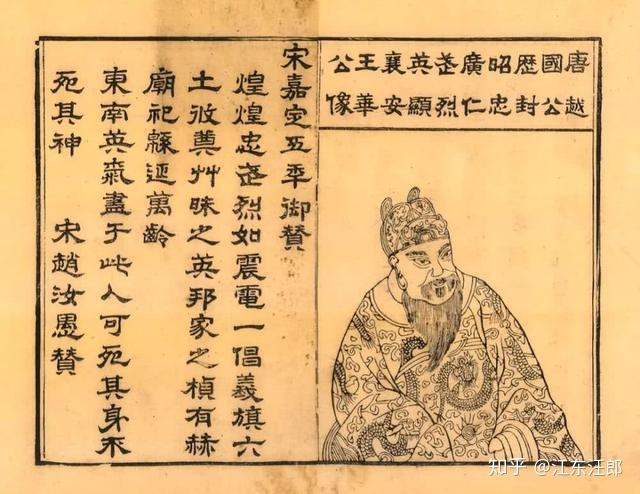 唐越
國公
歴封
昭忠
廣仁
武烈
英顯
襄安
王華
公像
宋嘉定五年御贊
煌煌忠武烈如震電一倡義旗六
土攸奠艸昧之英邦家之楨有赫
廟祀緜延萬齡
東南英氣盡于此人可死其身不
死其神 宋趙汝愚贊
知乎 @江东汪郎